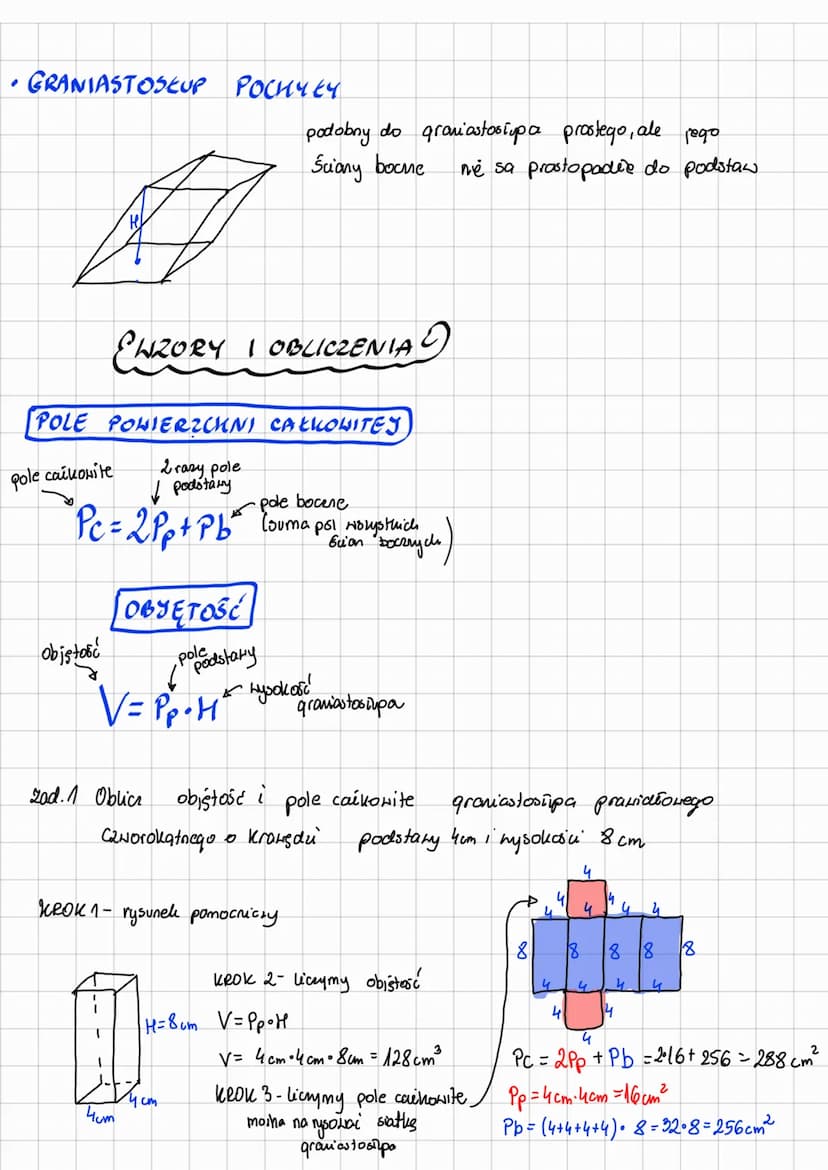 • GRANIASTOSŁUP POCHYŁY
podobny do graniastosłupa prostego, ale jego
ściany boczne nie są prostopadłe do podstaw
H
WZORY I OBLICZENIA
POLE POWIERZCHNI CAŁKOWITEJ
pole całkowite
2 razy pole
podstawy
pole boczne
(suma pól wszystkich
ścian bocznych)
Pc = 2Pp + Pb
OBJĘTOŚĆ
objętość
pole
podstawy
wysokość
graniastosłupa
V = Pp • H
zad. 1 Oblicz objętość i pole całkowite graniastosłupa prawidłowego
czworokątnego o krawędzi podstawy 4cm i wysokości 8 cm
KROK 1 - rysunek pomocniczy
H = 8cm
4 cm
4cm
KROK 2 - liczymy objętość
V = Pp • H
V = 4cm • 4cm • 8cm = 128cm³
KROK 3 - liczymy pole całkowite
można narysować siatkę
graniastosłupa
4
4 4 4
4 4 4
8 8 8 8 8
4 4 4 4
4 4
4
Pc = 2Pp + Pb = 2•16 + 256 = 288 cm²
Pp = 4cm • 4cm = 16cm²
Pb = (4+4+4+4) • 8 = 32•8 = 256cm²